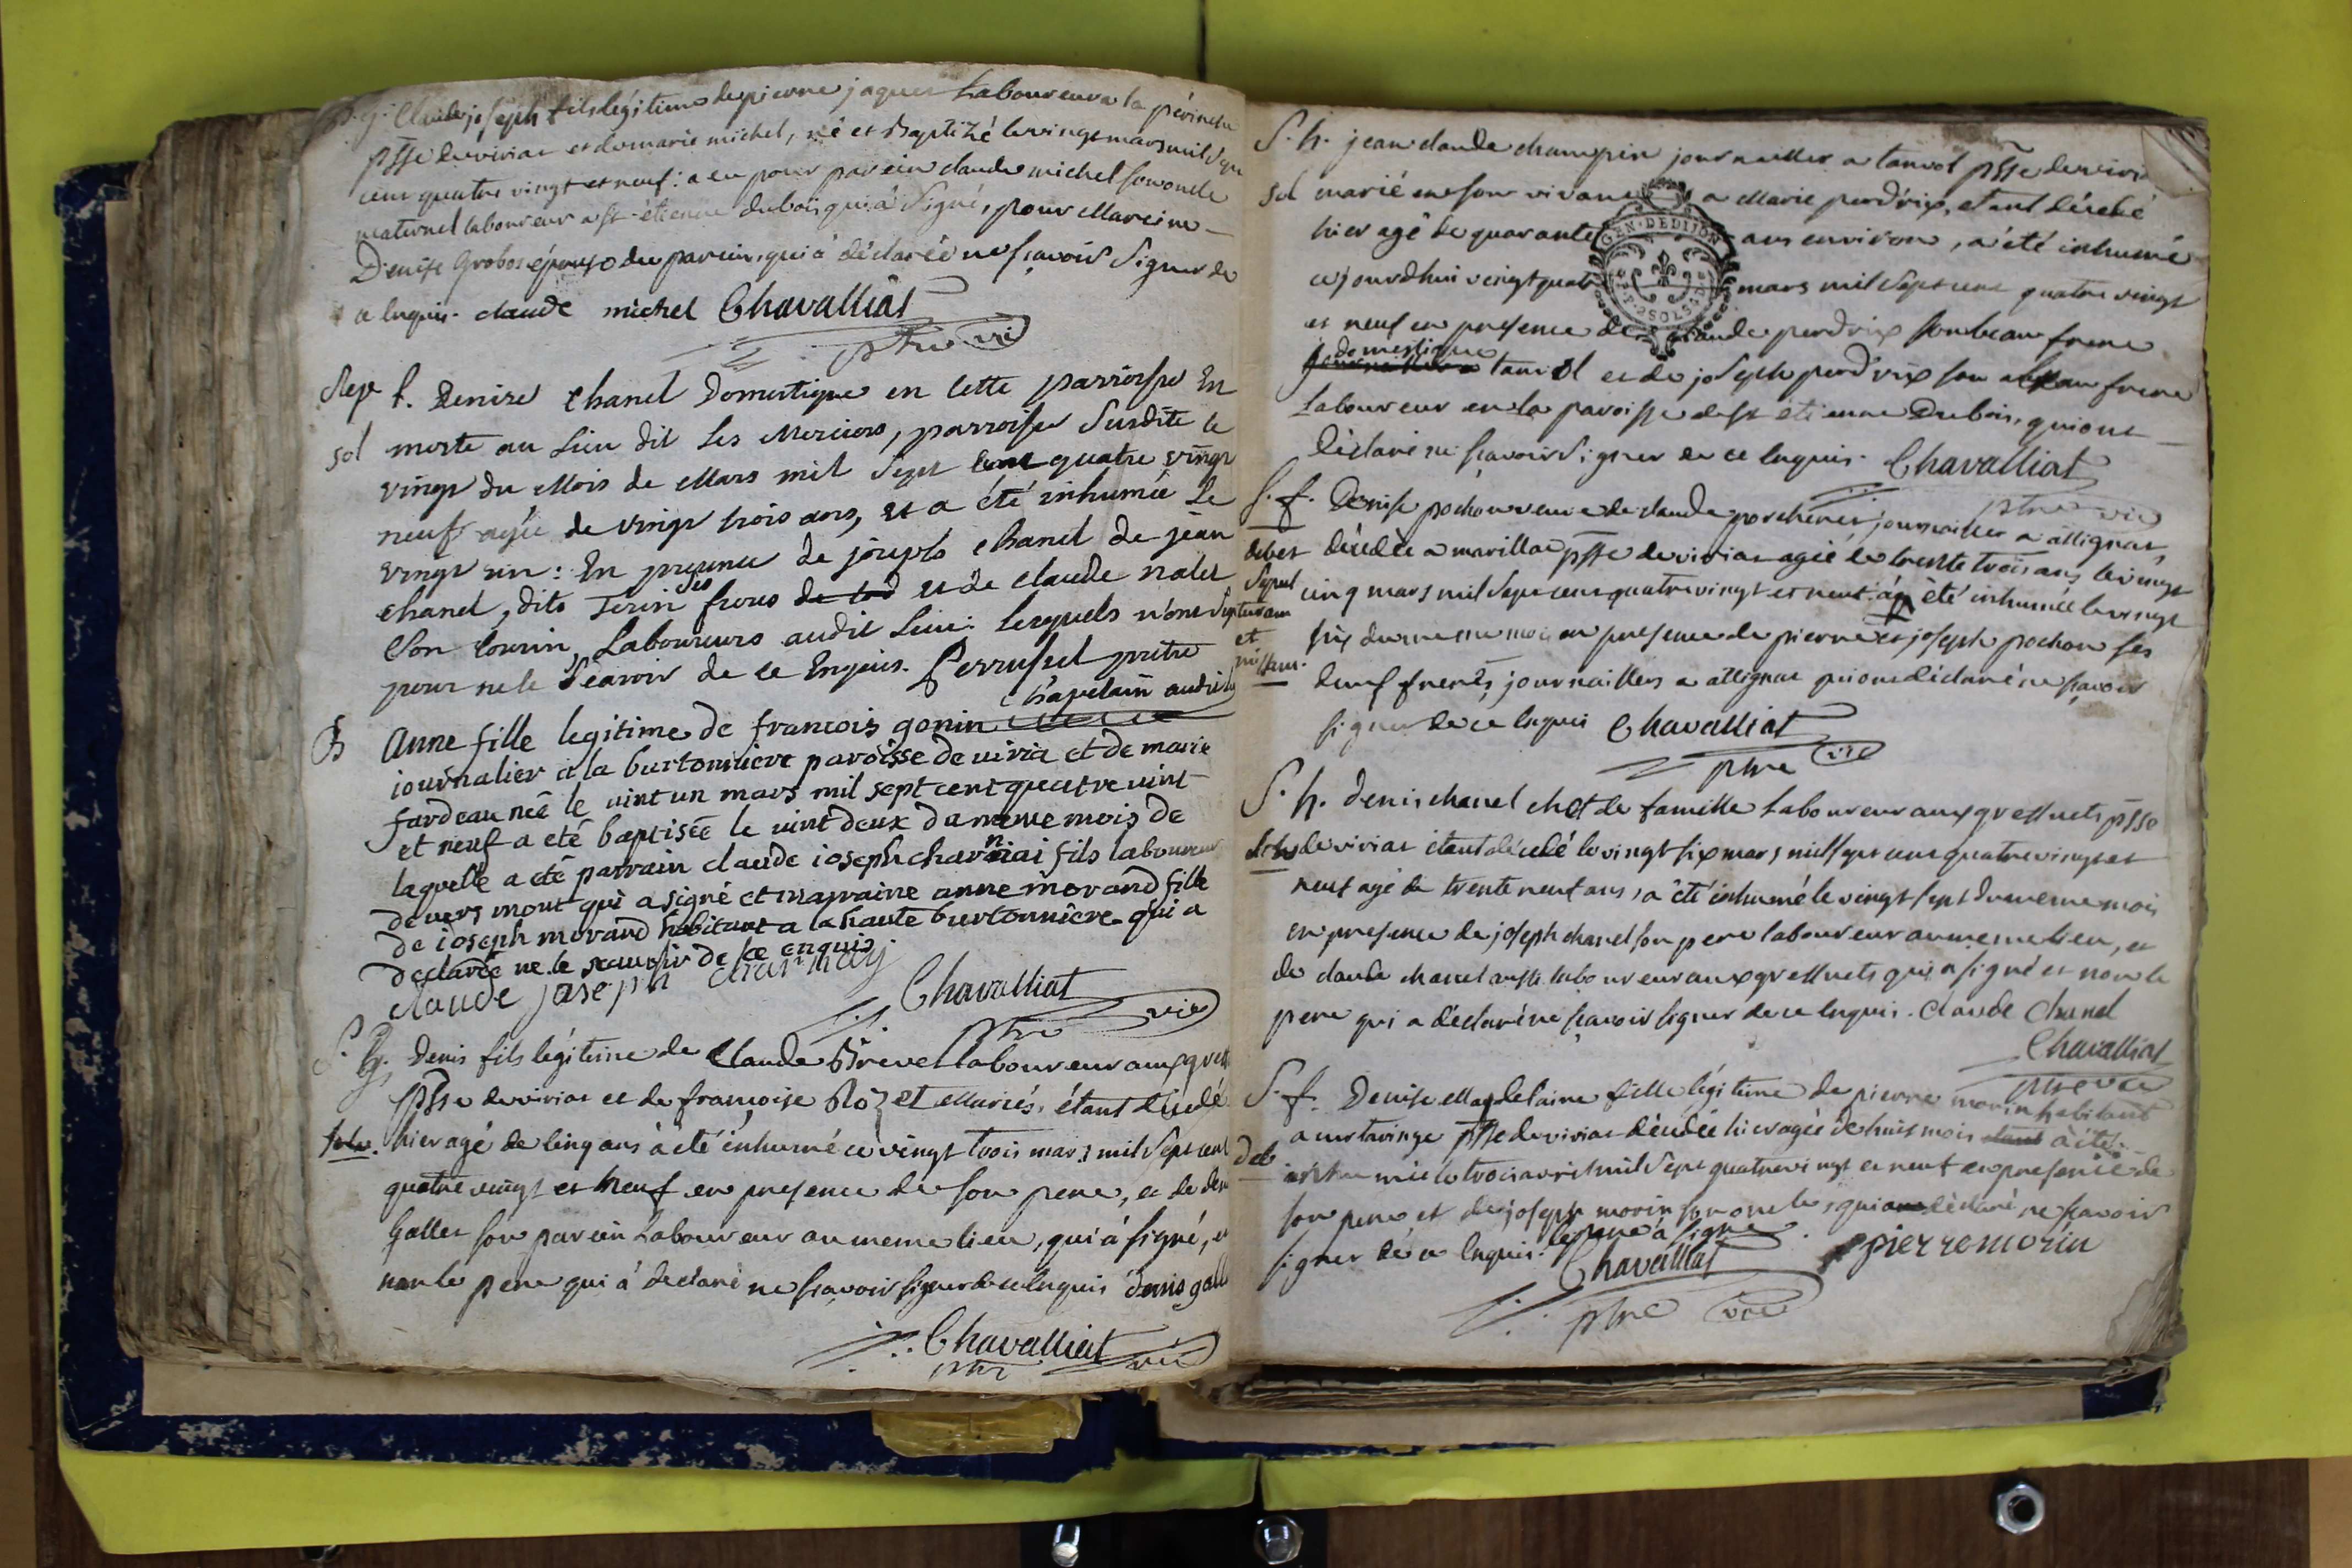 B. g. Claude joseph fils légitime de pierre jaques Laboureur a la
psse de viriat et de marie michel, né et Baptizé le vingt mars mil sept
cent quatre vingt et neuf: a eu pour parein claude michel son oncle
maternel laboureur a st. étienne dubois qui à Signé, pour Mareine
Denise Grobos épouse du parein, qui à déclaré ne sçavoir Signer de
ce Enquis. claude michel Chavalliat
ptre vic
Sep f. Denise Chanel Domestique en cette parroisse Est
sol morte au Lieu dit Les Merciers, parroisse Susdite le
vingt du Mois de Mars mil Sept Cent quatre vingt
neuf agée de vingt trois ans, et a été inhumée Le
vingt un: En presence de joseph Chanel de jean
Chanel, dits Ses freres de et de Claude
Son Cousin, Laboureurs audit Lieu: lesquels n'ont Signé
pour ne le Sçavoir de ce Enquis. Perruquet prètre
Chapelain audit
B Anne fille legitime de francois gonin
journalier a la burtonniere paroisse de viria et de marie
fardeau née le vint un mars mil sept cent quatre vint
et neuf a eté baptisée le vint deux du meme mois de
laquelle a eté parrain claude ioseph charnai fils laboureur
de vers mont qui a signé et marraine anne morand fille
de ioseph morand habitant a la haute burtonniere qui a
declarée ne le scauoir de ce enquis
claude joseph charnay
Chavalliat
ptre vic
S. g. Denis fils légitime de Claude Brevet laboureur aux
psse de viriat et de françoise Rozet Mariés, étant décédé
solv. hier agé de Cinq ans à été inhumé ce vingt trois mars mil Sept cent
quatre vingt et Neuf en presence de son pere, et de denis
Gallet son parein Laboureur au meme lieu, qui à signé, et
non le pere qui à declaré ne sçavoir signer de ce Enquis denis gall
Chavalliat
ptre vic
S. h. jean claude champin journailler a tanvol psse de viriat
sol marié en son vivant a Marie perdrix, etant décédé
hier agé de quarante ans environ, a été inhumé
GEN. DE DIJON
cejourdhui vingt quatre mars mil Sept cent quatre vingt
et neuf en presence de Claude perdrix son beau frere
domestique a tanvol et de joseph perdrix son beau frere
Laboureur en la paroisse de st étienne Dubois, qui ont
Déclaré ne sçavoir Signer de ce Enquis. Chavalliat
ptre vic
S. f. Denise pochon veuve de claude porcheret journailler a attignat
debet décédée a marillac psse de viriat agée de trente trois ans le vingt
Sepul cinq mars mil Sept cent quatre vingt et neuf à été inhumée le vingt
turam
et
six du meme mois en presence de pierre et joseph pochon ses
deux freres, journaillers a attignat qui ont déclaré ne sçavoir
signer de ce Enquis Chavalliat
ptre vic
S. h. denis chanel chef de famille Laboureur aux greffiets psse
de viriat étant décédé le vingt six mars mil sept cent quatre vingt et
neuf agé de trente neuf ans, a été inhumé le vingt sept du meme mois
en presence de joseph chanel son pere laboureur au meme lieu, et
de claude chanel aussi laboureur aux greffiets qui a signé et non le
pere qui a déclaré ne sçavoir signer de ce Enquis. Claude Chanel
Chavalliat
ptre vic
S. f. Denise Magdelaine fille légitime de pierre morin habitant
a curtaringe psse de viriat décédée hier agée de huit mois à été
deb inhumée le trois avril mil Sept quatre vingt et neuf en presence de
son pere et de joseph morin son oncle, qui a déclaré ne sçavoir
signer de ce Enquis. le pere à signé. pierre morin
Chavalliat
ptre vic